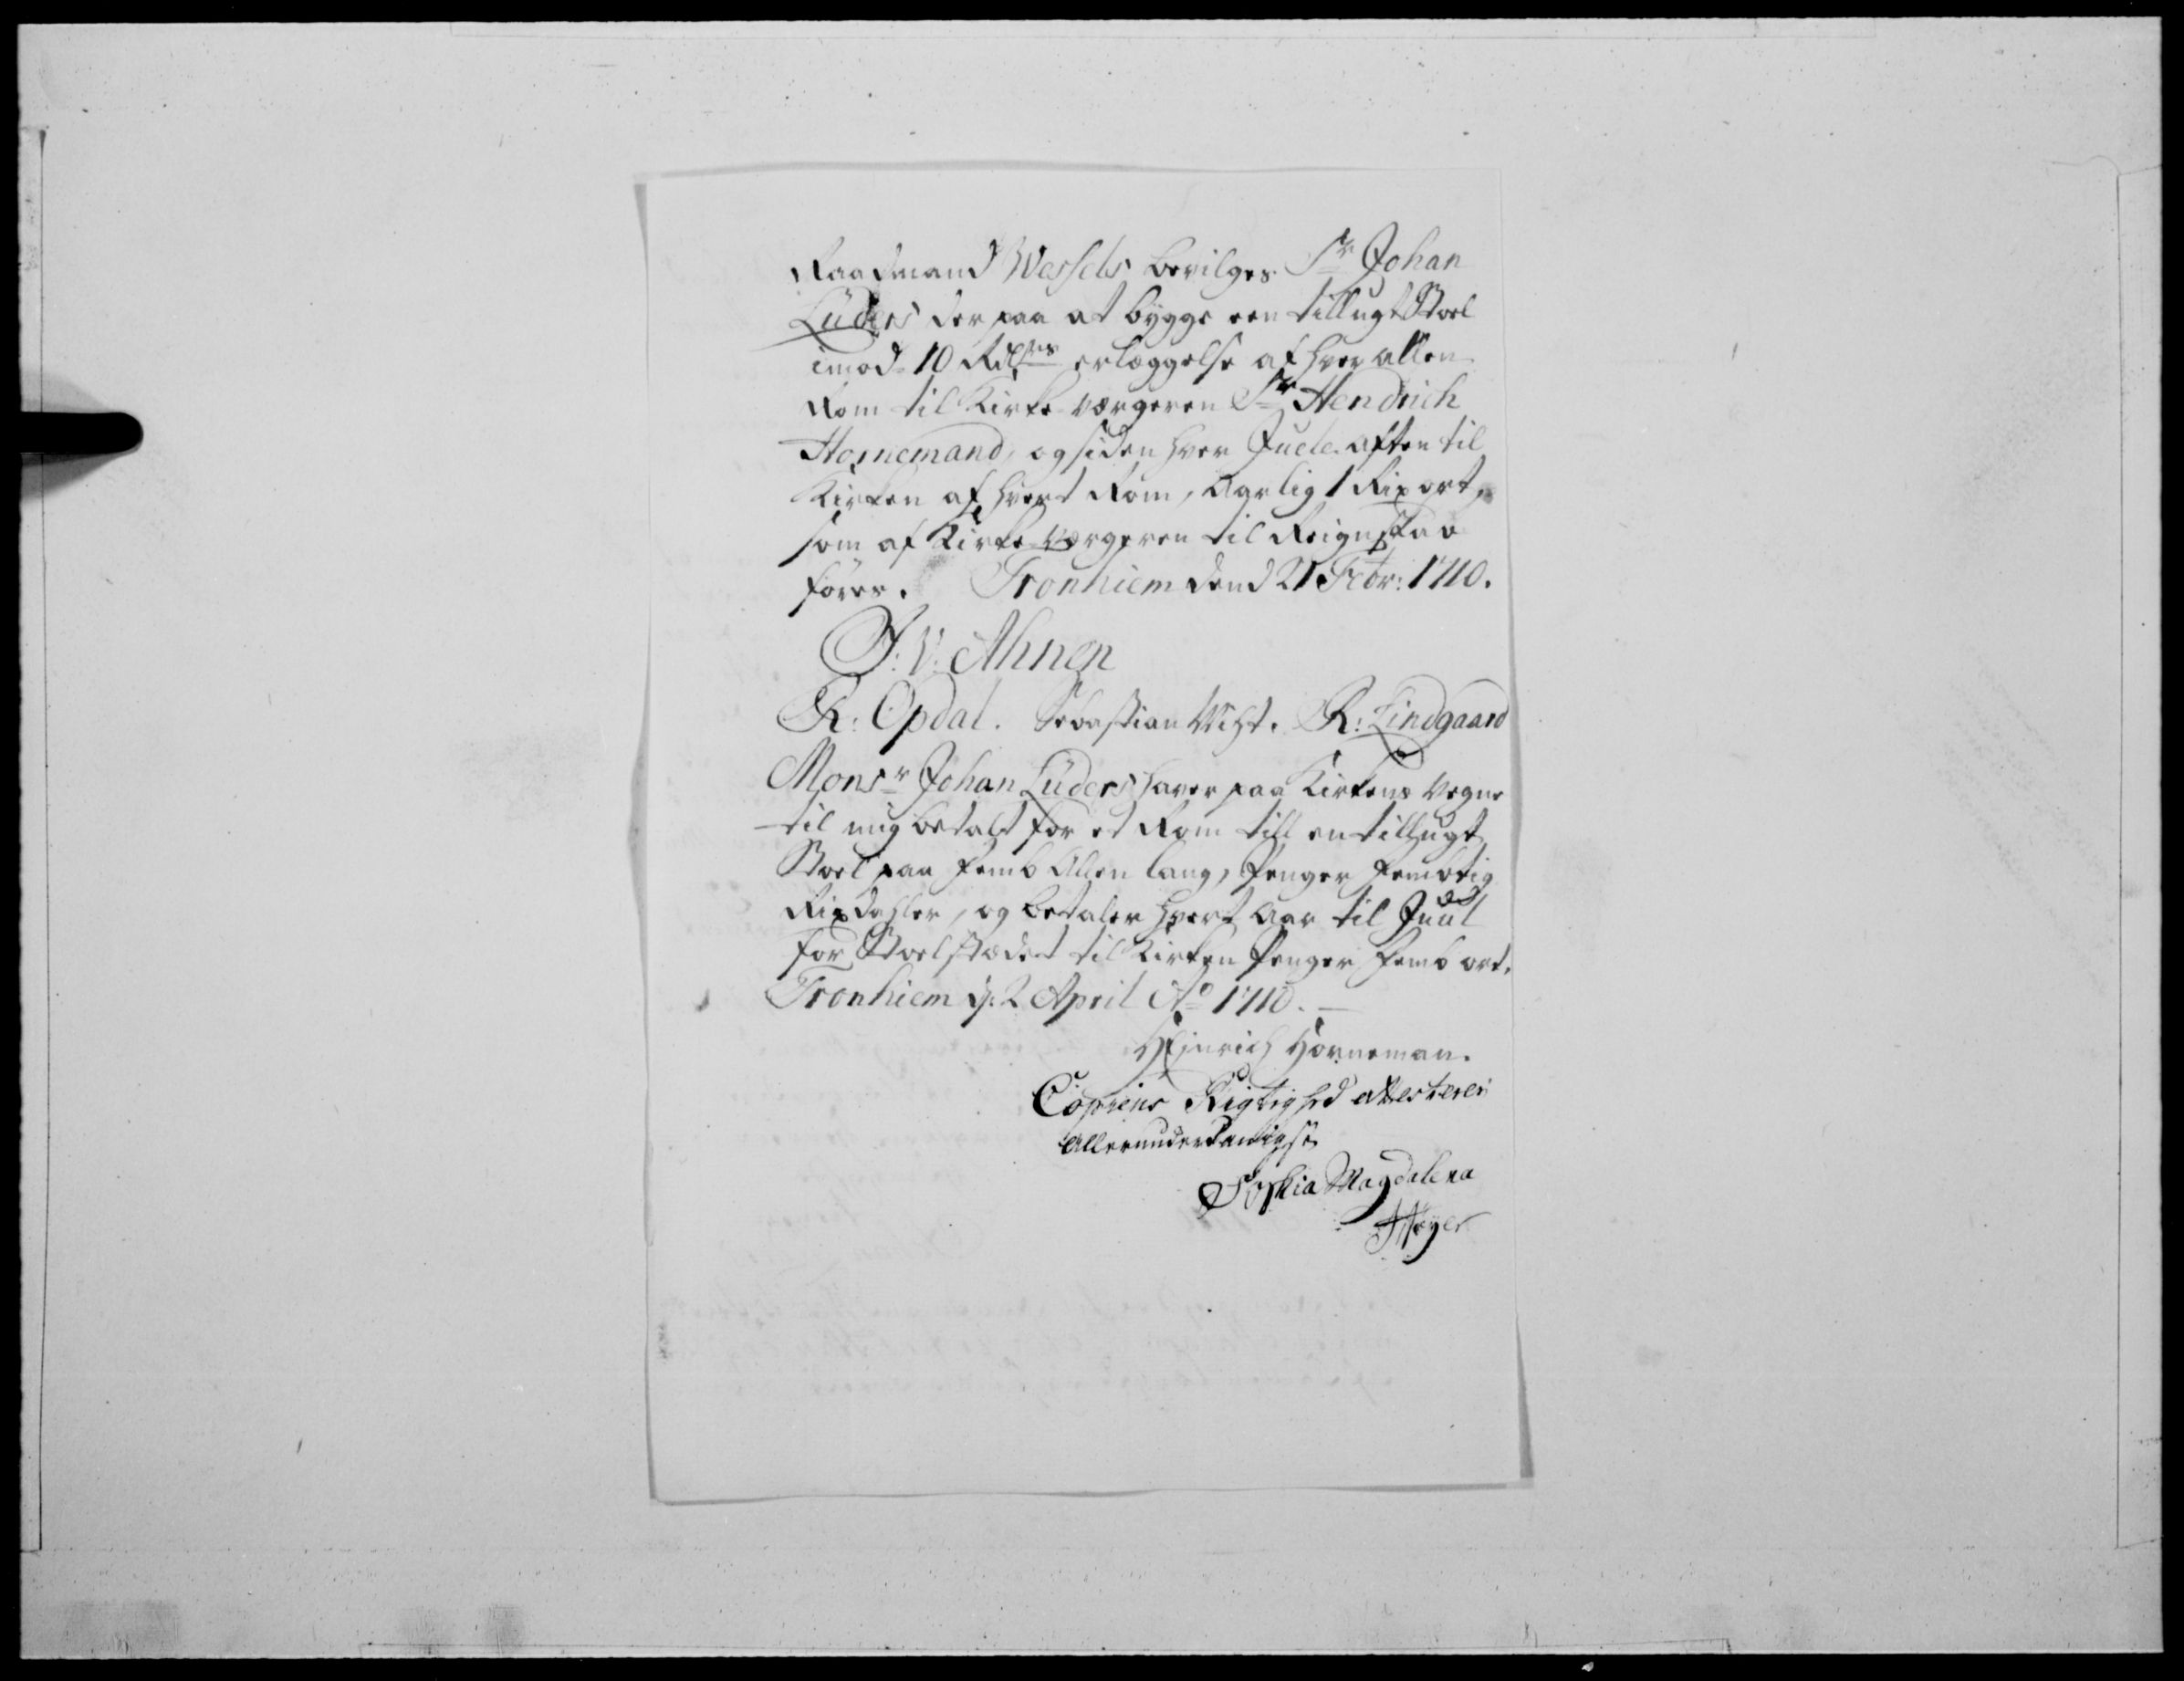 Raadmand Wessels bevilges Sr Johan
Lüders der paa at bygge een tillugt Stoel
imod 10 Rdlrs erlæggelse af hver Allen
Rom til Kirke-værgeren Sr Hendrich
Hornemand, og siden hver Juele-aften til
Kirken af hvert Rom, Aarlig 1 Rix ort,
som af Kirke-værgeren til Reignskab
föres. Tronhiem dend 21 Febr: 1710.
J: V: Ahnen
R: Opdal. Sebastian Wiht. R: Lindgaard
Monsr Johan Lüders haver paa Kirkens vegne
til mig betalt for et Rom till en tillugt
Stoel paa Femb Allen lang, Penger Fembtig
Rixdahler, og betaler hvert Aar til Juul
for Stoelstædet til Kirken Penger Femb ort.
Tronhiem d: 2 April Ao 1710.
Hinrich Horneman.
Copiens Rigtighed attesterer
Allerunderdanigst
Sophia Magdalena
Høyer